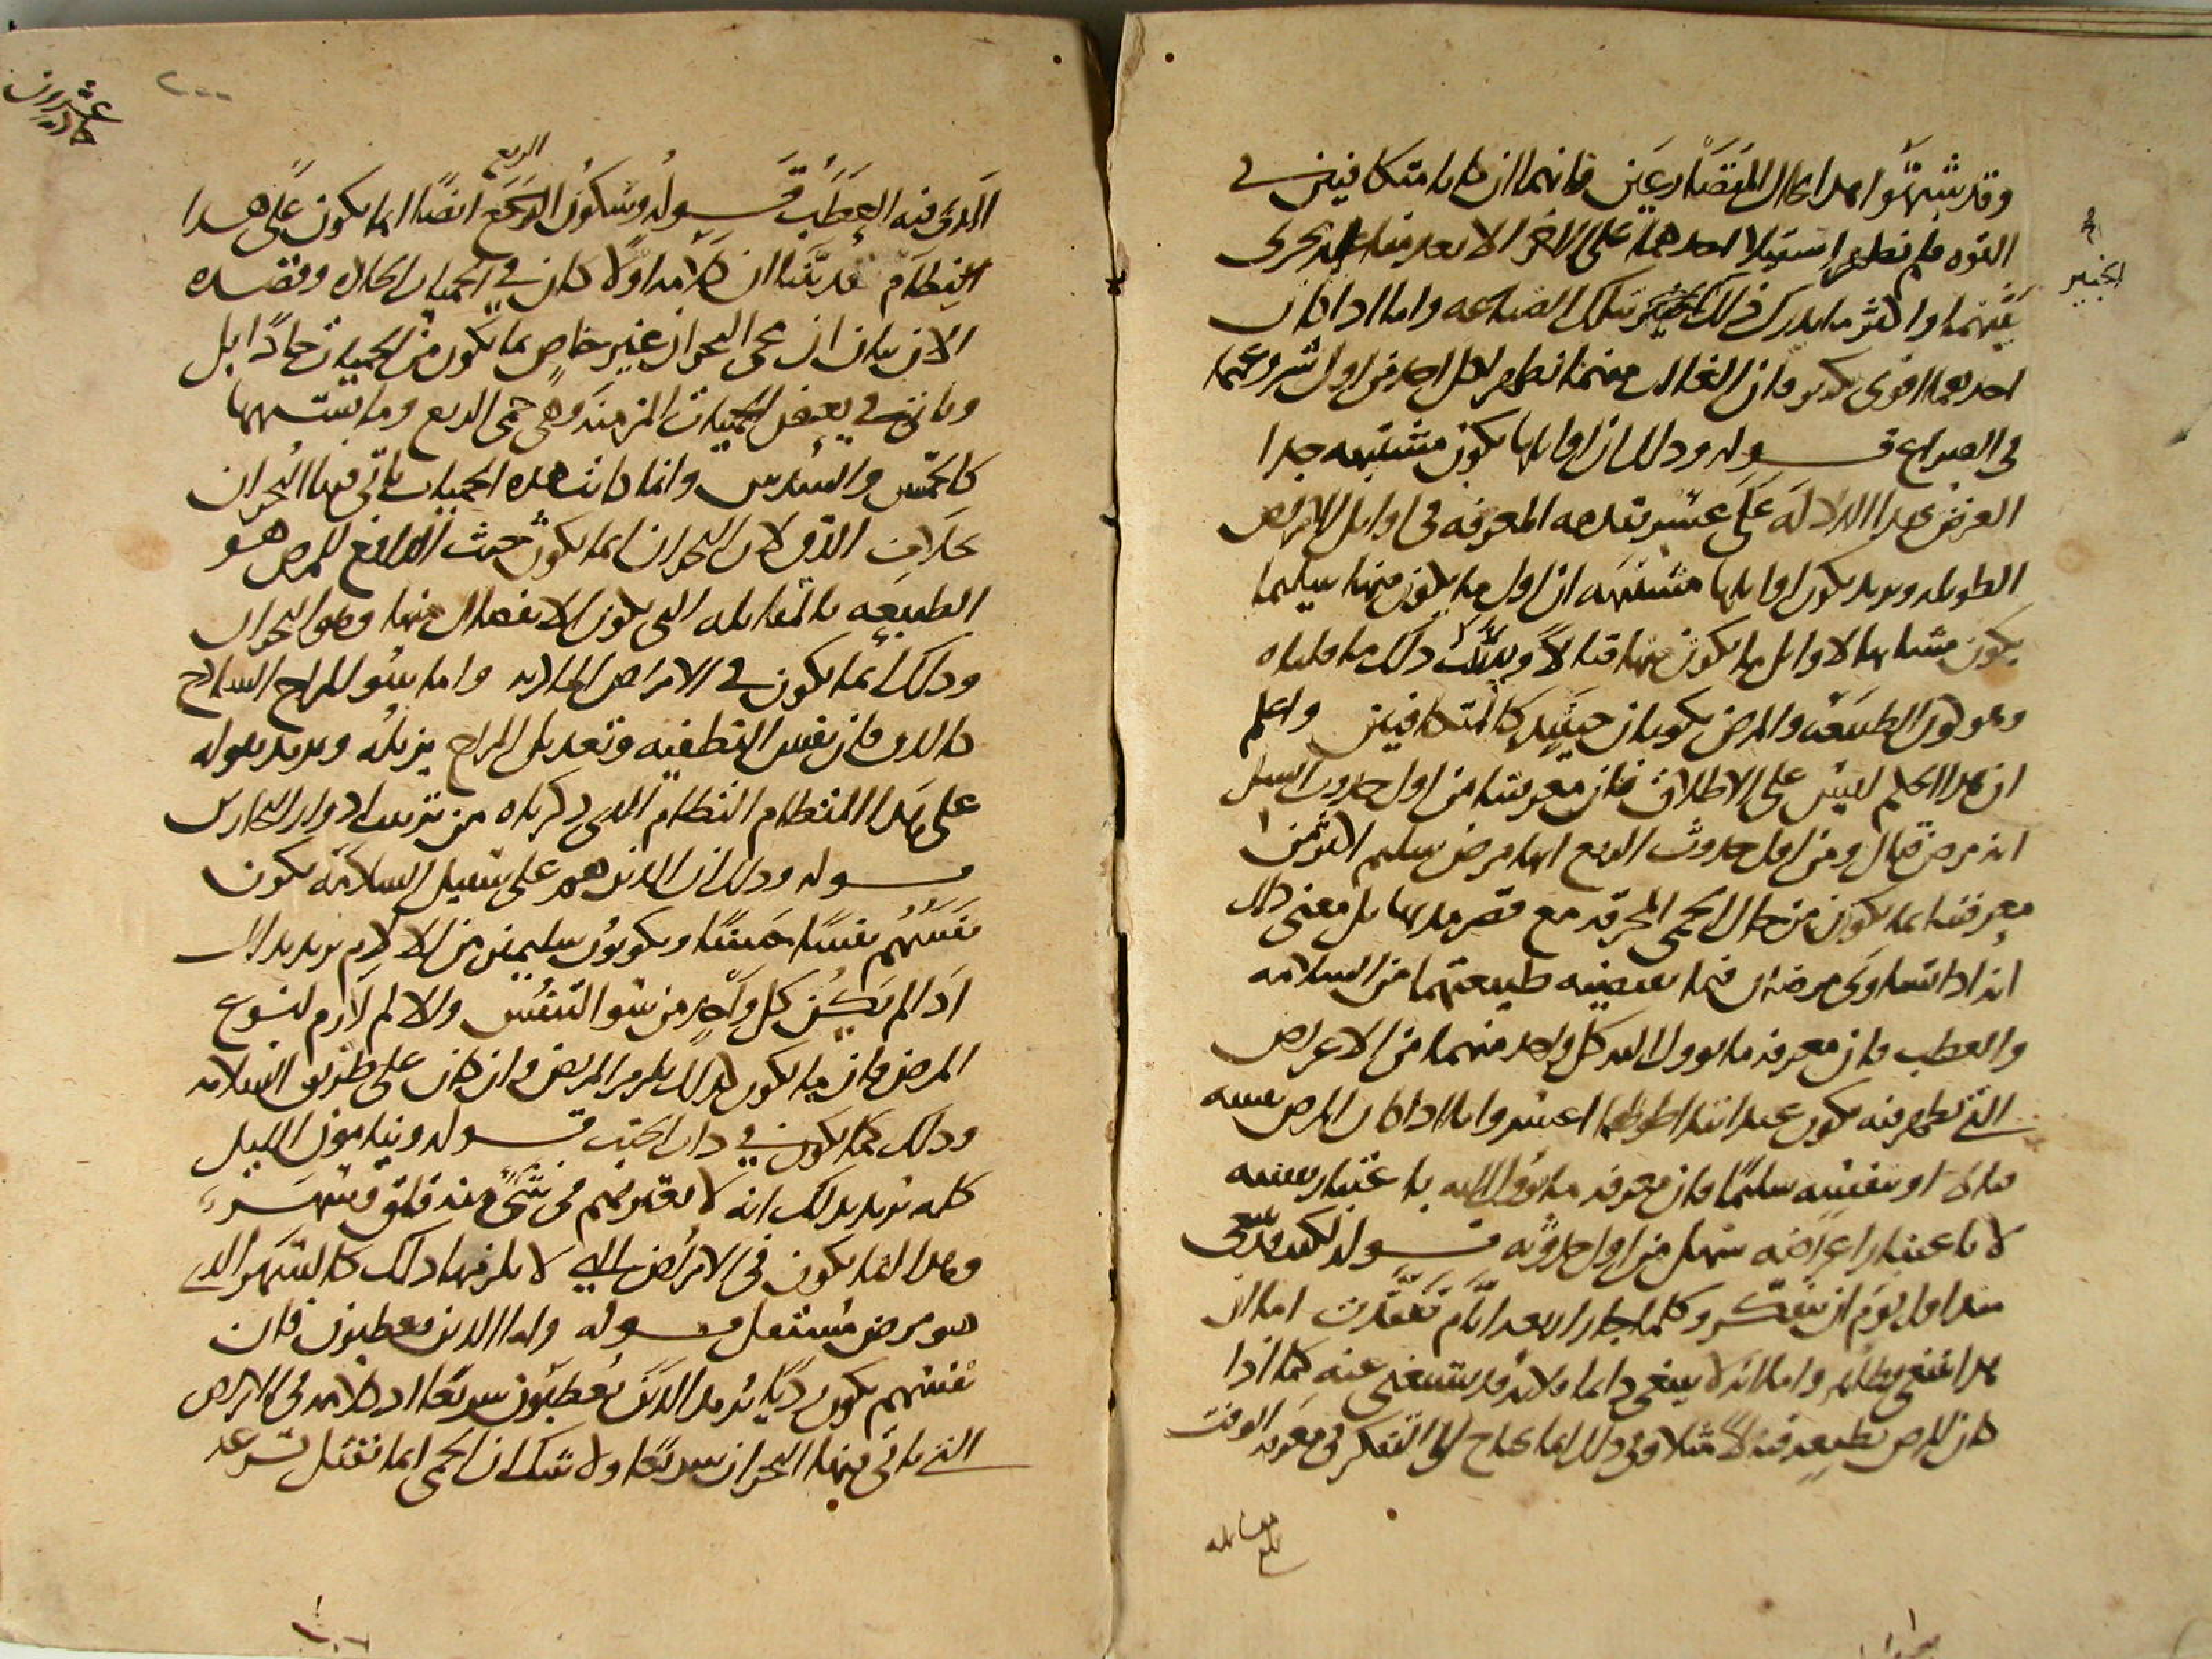 وقد شبهوا هذا بحال المتصارعين فانهما ان كانا متكافيين في
القوة فلم يظهر استيلا احدهما على الاخر الا بعد
بينهما واكثر ما يدرك ذلك الخبير بتلك الصناعه واما اذا كان
احدهما اقوى كثير فان الغالب منهما يظهر لكل احد من اول شروعهما
في الصراع قوله وذلك ان اوايلها يكون مشتبهه جدا
الغرض بهذا الدلالة على عسر تقدمه المعرفه في اوايل الامراض
الطويله ويريد بكون اوايلها مشتبهه ان اول ما يكون منها سليما
يكون مشابها لاوايل ما يكون منها قتالا وبيان ذلك ما قلناه
وهو كون الطبيعة والمرض يكونان حينيذ كالمتكافيين واعلم
ان هذا الحكم ليس على الاطلاق فان معرفتنا من اول حدوث السل
انه مرض قتال ومن اول حدوث الربع انها مرض سليم اكثر من
معرفتنا بما يكون من حال الحمى المحرقه مع قصر مدتها بل معنى ذلك
انه اذا تساوى مرضان فيما تقتضيه طبيعتهما من السلامه
والعطب فان معرفه ما يوول اليه كل واحد منهما من الاعراض
التي تظهر فيه يكون عند ابتدا اطولهما اعسر واما اذا كان المرض بنفسه
قتالا او بنفسه سليما فان معرفه ما يؤول اليه باعتبار نفسه
لا باعتبار اعراضه سهل من اول حدوثه قوله لكنه ينبغي
منذ اول يوم ان يتفكر وكلما جاز اربعة ايام تفقدت اما ان
هذا ينبغي فظاهر واما انه لا ينبغي دايما فلانه قد يستغنى عنه كما اذا
كان المرض بطبيعته قتالا مثلا وفي ذلك انما يحتاج الى التفكر في معرفه الوقت
الخبير
بلغ مقابله
حاديه عشران
٢٠٠
الربع
الذي فيه العطب قوله وسكون الربع ايضا انما يكون على هذا
النظام قد بينا ان كلامه اولا كان في الحميات الحاده وقصده
الان بيان ان مجي البحران غير خاص بما يكون من الحميات حادا بل
وياتي في بعض الحميات المزمنة وهي حمى الربع وما يشبهها
كالخمس والسدس وانما كانت هذه الحميات ياتي فيها البحران
بخلاف الدق لان البحران انما يكون حيث الدافع للمرض هو
الطبيعه بالمقابله التي يكون الانفصال منها وهو البحران
وذلك انما يكون في الامراض الماديه واما سو المزاج الساذج
كالدق فان نفس التطفيه وتعديل المزاج يزيله ويريد بقوله
على هذا النظام النظام الذي ذكرناه من ترتيب ادوار البحارين
قوله وذلك ان الذين هم على سبيل السلامه يكون
تنفسهم تنفسا حسنا ويكونون سليمين من الالام يريد بذلك
اذا لم يكن كل واحد من سو التنفس والالم لازم لنوع
المرض فان ما يكون كذلك يلزم المريض وان كان على طريق السلامه
وذلك كما يكون في ذات الجنب قوله وينامون الليل
كله يريد بذلك انه لا يعترضهم في شيء منه قلق وسهر
وهذا انما يكون في الامراض التي لا يلزمها ذلك كالسهر الذي
هو مرض مستقل قوله واما الذين يعطبون فان
تنفسهم يكون رديا يريد الذين يعطبون سريعا اذ كلامه في الامراض
التي ياتي فيها البحران سريعا ولا شك ان الحمى انما تقتل بسرعه